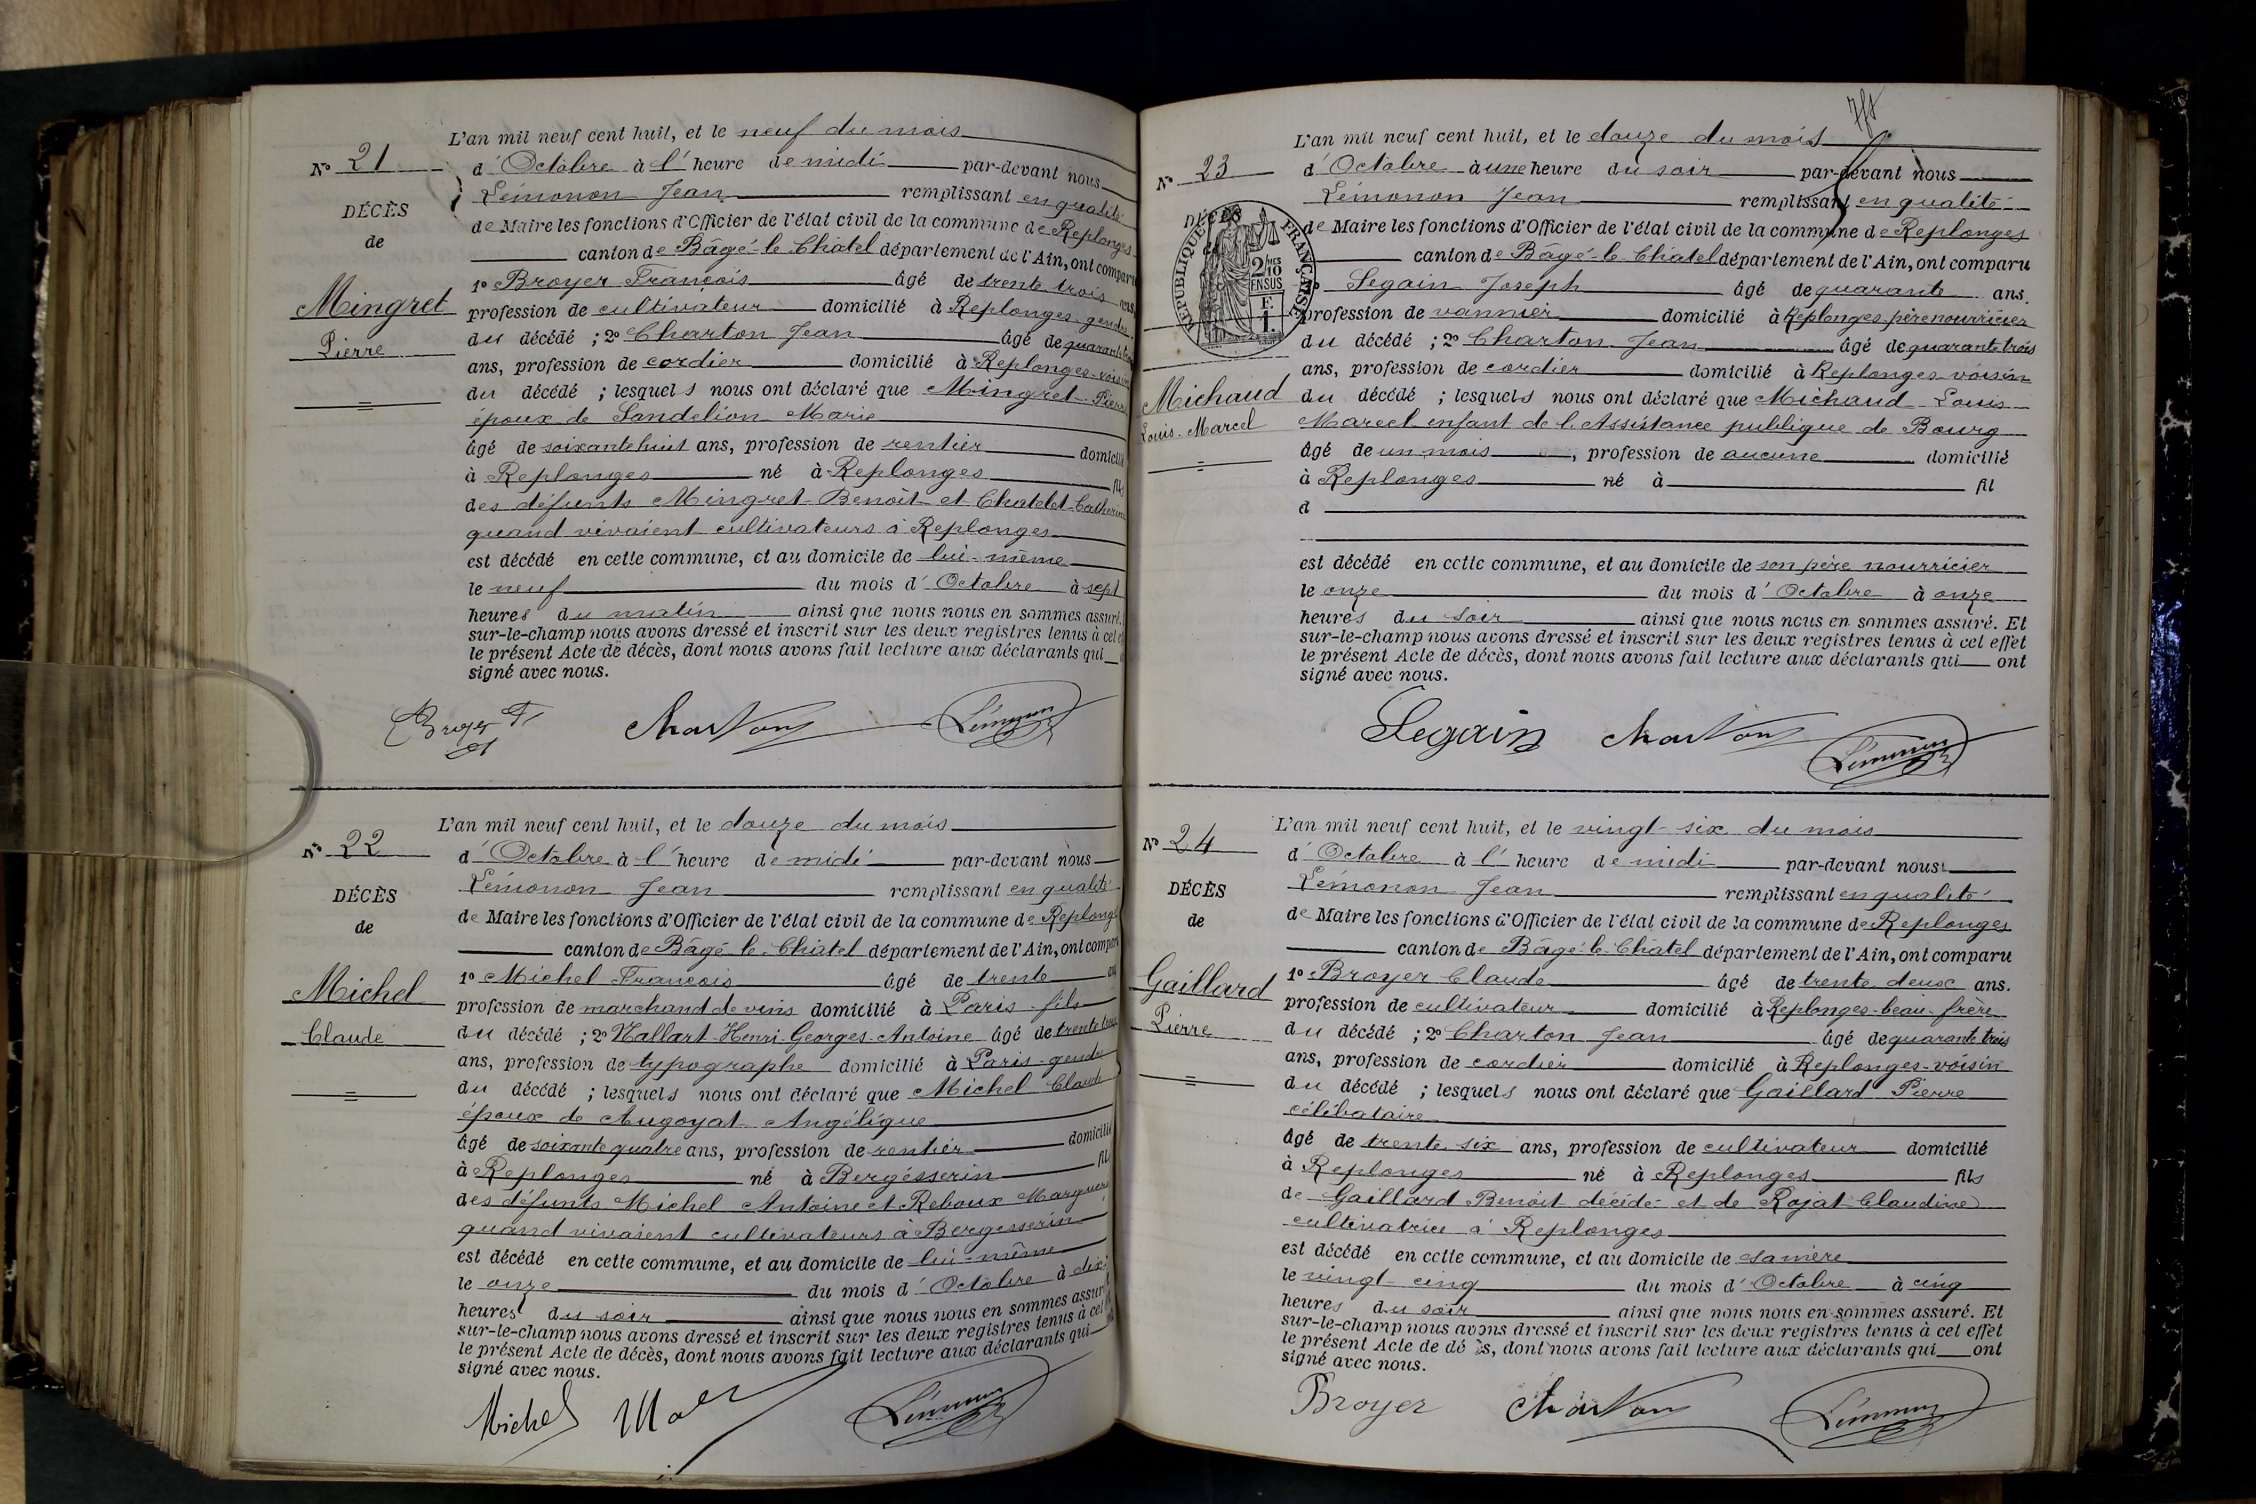 L'an mil neuf cent huit, et le neuf du mois
N° 21
d'Octobre à l'heure de midi par-devant nous
Lémonon Jean remplissant en qualité
DÉCÈS
de Maire les fonctions d'Officier de l'état civil de la commune de Replonges
de
canton de Bâgé-le-Châtel département de l'Ain, ont comparu
1° Broyer François âgé de trente trois ans
Mingret
profession de cultivateur domicilié à Replonges gendre
Pierre
du décédé ; 2° Charton Jean âgé de quarante trois
ans, profession de cordier domicilié à Replonges-voisin
du décédé ; lesquels nous ont déclaré que Mingret Pierre
époux de Sandelion Marie
âgé de soixante huit ans, profession de rentier domicilié
à Replonges né à Replonges fils
des défunts Mingret Benoît et Chatelet Catherine
quand vivaient cultivateurs à Replonges
est décédé en cette commune, et au domicile de lui-même
le neuf du mois d'Octobre à sept
heures du matin ainsi que nous nous en sommes assuré.
sur-le-champ nous avons dressé et inscrit sur les deux registres tenus à cet
le présent Acte de décès, dont nous avons fait lecture aux déclarants qui
signé avec nous.
Broyer Fs Charton Lémonon
L'an mil neuf cent huit, et le douze du mois
N° 22
d'Octobre à l'heure de midi par-devant nous
Lémonon Jean remplissant en qualité
DÉCÈS
de Maire les fonctions d'Officier de l'état civil de la commune de Replonges
de
canton de Bâgé-le-Châtel département de l'Ain, ont comparu
1° Michel François âgé de trente an
Michel
profession de marchand de vins domicilié à Paris fils
Claude
du décédé ; 2° Mallart Henri-Georges-Antoine âgé de trente
ans, profession de typographe domicilié à Paris-gendre
du décédé ; lesquels nous ont déclaré que Michel Claude
époux de Augoyat Angélique
âgé de soixante quatre ans, profession de rentier domicilié
à Replonges né à Bergésserin fils
des défunts Michel Antoine et Reboux
quand vivaient cultivateurs à Bergesserin
est décédé en cette commune, et au domicile de lui-même
le onze du mois d'Octobre à dix
heures du soir ainsi que nous nous en sommes assuré
sur-le-champ nous avons dressé et inscrit sur les deux registres tenus à cet
le présent Acte de décès, dont nous avons fait lecture aux déclarants qui
signé avec nous.
Michel Lémonon
L'an mil neuf cent huit, et le douze du mois
N° 23
d'Octobre à une heure du soir par-devant nous
Lémonon Jean remplissant en qualité
DÉCÈS
de Maire les fonctions d'Officier de l'état civil de la commune de Replonges
RÉPUBLIQUE FRANÇAISE
2/10 MES EN SUS
E. I.
canton de Bâgé-le-Châtel département de l'Ain, ont comparu
Segain Joseph âgé de quarante ans.
profession de vannier domicilié à Replonges père nourricier
du décédé ; 2° Charton Jean âgé de quarante trois
ans, profession de cordier domicilié à Replonges-voisin
Michaud
du décédé ; lesquels nous ont déclaré que Michaud Louis
Louis-Marcel
Marcel enfant de l'Assistance publique de Bourg
âgé de un mois, profession de aucune domicilié
à Replonges né à fil
d
est décédé en cette commune, et au domicile de son père nourricier
le onze du mois d'Octobre à onze
heures du soir ainsi que nous nous en sommes assuré. Et
sur-le-champ nous avons dressé et inscrit sur les deux registres tenus à cet effet
le présent Acte de décès, dont nous avons fait lecture aux déclarants qui ont
signé avec nous.
Segain Charton Lémonon
L'an mil neuf cent huit, et le vingt-six du mois
N° 24
d'Octobre à l'heure de midi par-devant nous
Lémonon Jean remplissant en qualité
DÉCÈS
de Maire les fonctions d'Officier de l'état civil de la commune de Replonges
de
canton de Bâgé-le-Châtel département de l'Ain, ont comparu
1° Broyer Claude âgé de trente deux ans.
Gaillard
profession de cultivateur domicilié à Replonges-beau-frère
Pierre
du décédé ; 2° Charton Jean âgé de quarante trois
ans, profession de cordier domicilié à Replonges-voisin
du décédé ; lesquels nous ont déclaré que Gaillard Pierre
célibataire
âgé de trente six ans, profession de cultivateur domicilié
à Replonges né à Replonges fils
de Gaillard Benoît décédé et de Rojat Claudine
cultivatrice à Replonges
est décédé en cette commune, et au domicile de sa mère
le vingt-cinq du mois d'Octobre à cinq
heures du soir ainsi que nous nous en sommes assuré. Et
sur-le-champ nous avons dressé et inscrit sur les deux registres tenus à cet effet
le présent Acte de décès, dont nous avons fait lecture aux déclarants qui ont
signé avec nous.
Broyer Charton Lémonon